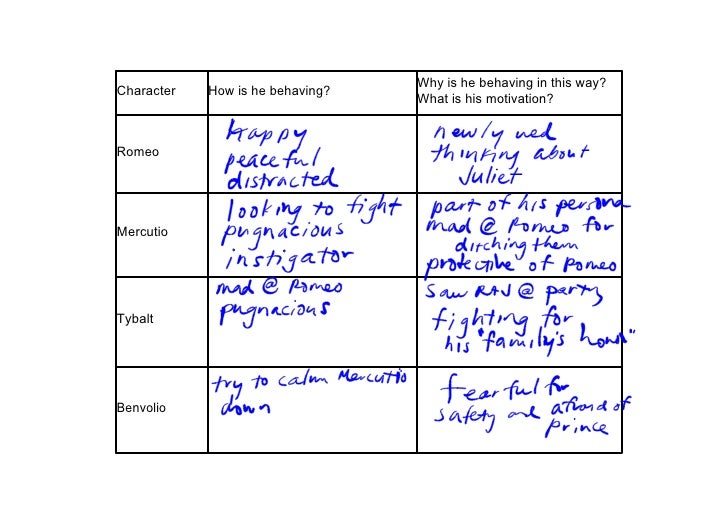 Character
How is he behaving?
Why is he behaving in this way?
What is his motivation?
Romeo
Happy
peaceful
distracted
newly wed
thinking about
Juliet
Mercutio
looking to fight
pugnacious
instigator
part of his persona
mad @ Romeo for
ditching them
protective of Romeo
Tybalt
mad @ Romeo
pugnacious
Saw R & J @ party
fighting for
his "family's honor"
Benvolio
try to calm Mercutio
down
fearful for
safety and afraid of
prince